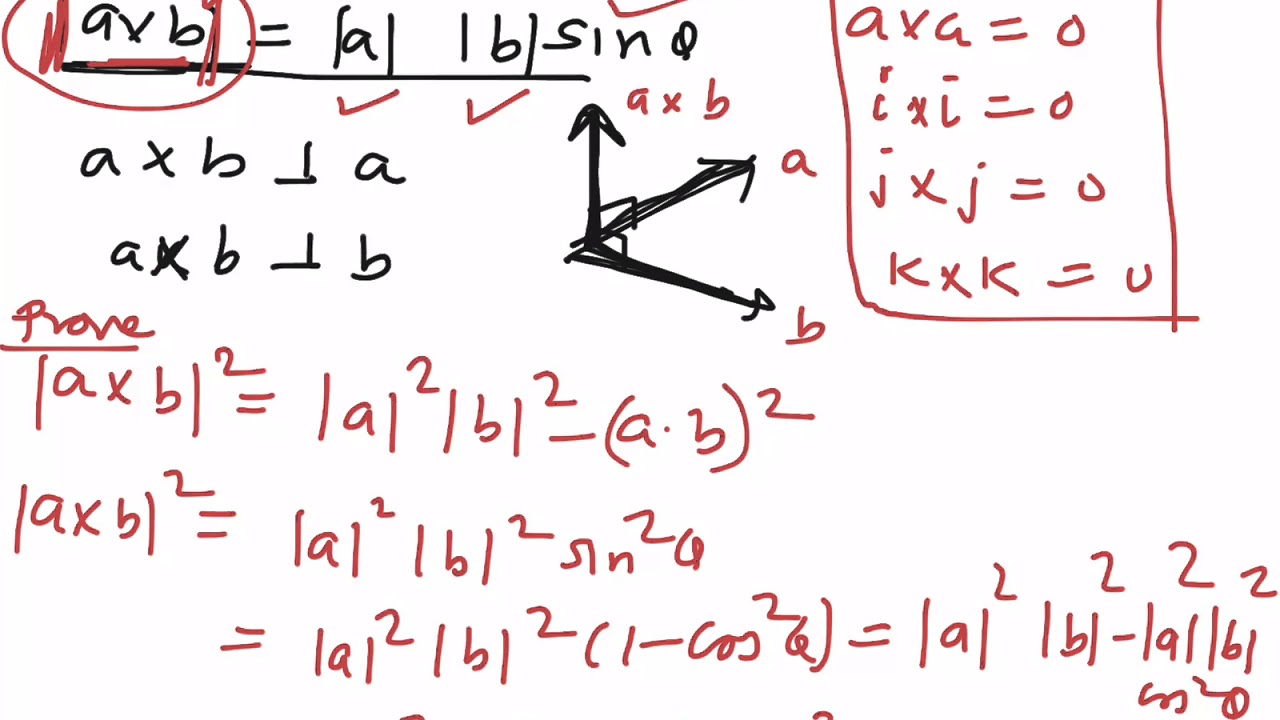 |a×b| = |a| |b| sin θ
a × b ⊥ a
a × b ⊥ b
a × b
a
b
a×a = 0
i×i = 0
j×j = 0
k×k = 0
Prove
|a×b|² = |a|²|b|² − (a·b)²
|a×b|² = |a|²|b|² sin²θ
= |a|²|b|²(1−cos²θ) = |a|²|b|² − |a|²|b|²
cos²θ